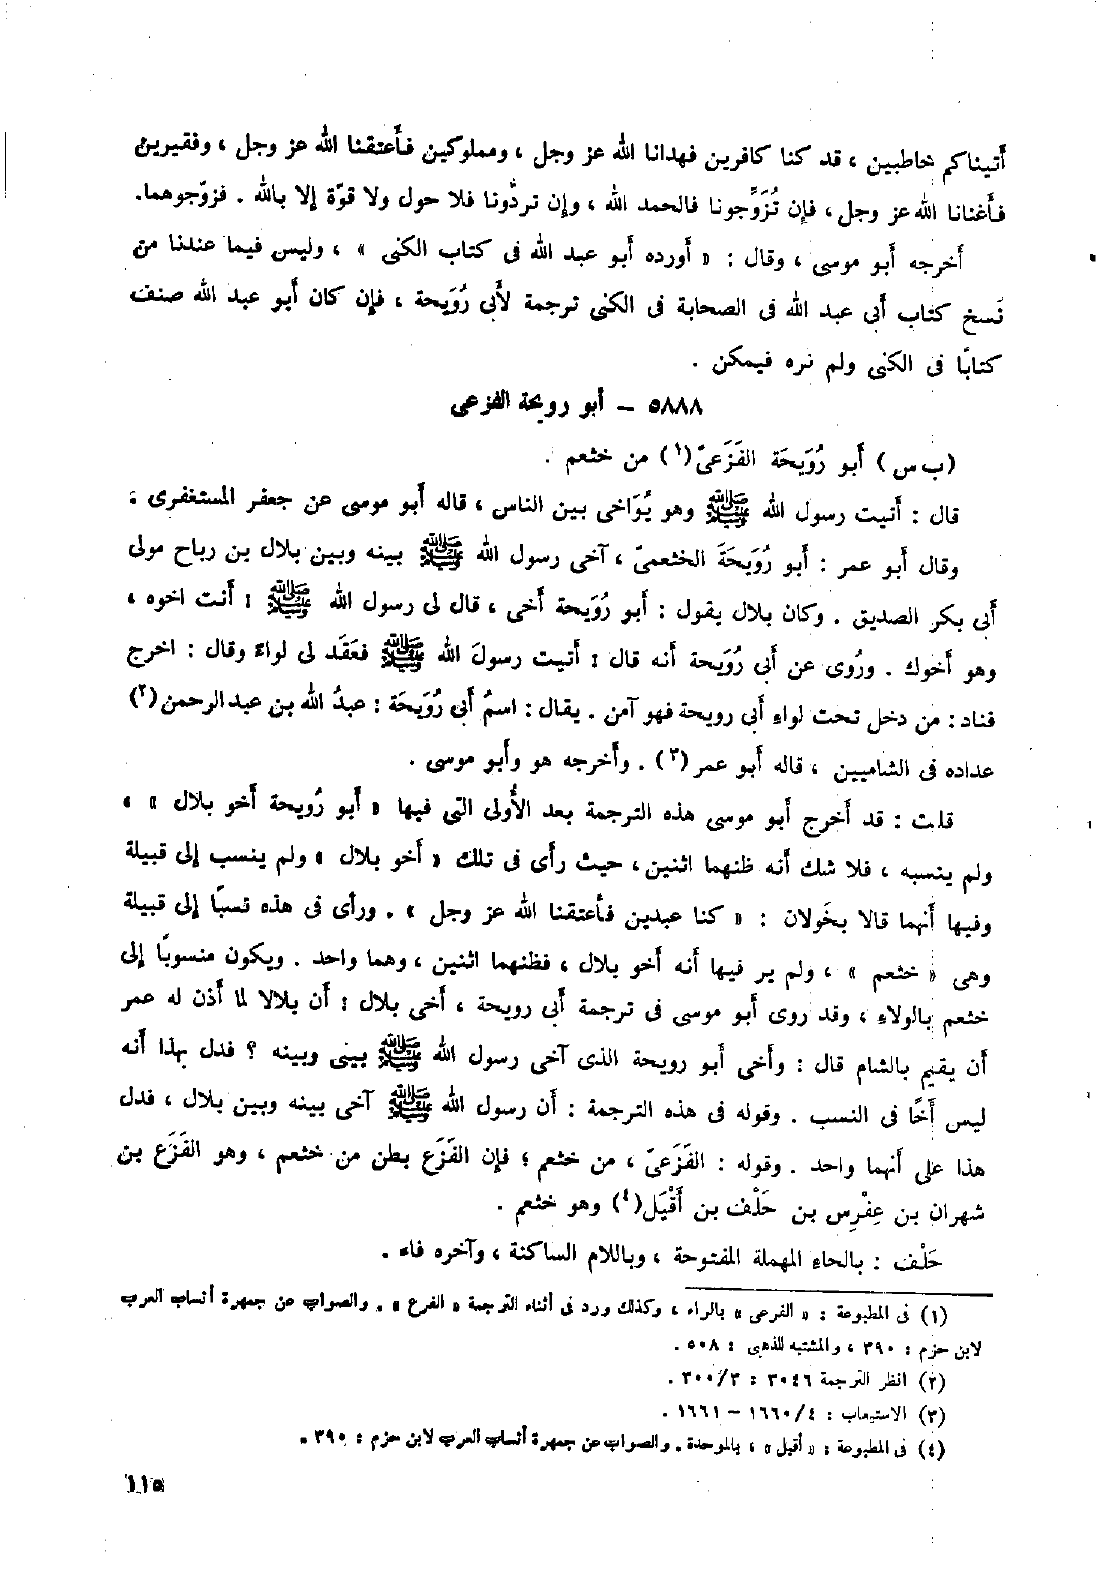 أتيناكم خاطبين ، قد كنا كافرين فهدانا الله عز وجل ، ومملوكين فأعتقنا الله عز وجل ، وفقيرين
فأغنانا الله عز وجل ، فإن تُزَوِّجونا فالحمد لله ، وإن تردُّونا فلا حول ولا قوّة إلا بالله . فزوّجوهما.
أخرجه أبو موسى ، وقال : « أورده أبو عبد الله فى كتاب الكنى » ، وليس فيما عندنا من
نَسخ كتاب أبى عبد الله فى الصحابة فى الكنى ترجمة لأبى رُوَيحة ، فإن كان أبو عبد الله صنف
كتابًا فى الكنى ولم نره فيمكن .
٥٨٨٨ – أبو رويحة الفزعى
(ب س) أبو رُوَيحَة الفَزَعىّ(١) من خثعم .
قال : أتيت رسول الله ﷺ وهو يُوَاخى بين الناس ، قاله أبو موسى عن جعفر المستغفرى :
وقال أبو عمر : أبو رُوَيحَةَ الخثعمىّ ، آخى رسول الله ﷺ بينه وبين بلال بن رباح مولى
أبى بكر الصديق . وكان بلال يقول : أبو رُوَيحة أخى ، قال لى رسول الله ﷺ : أنت اخوه ،
وهو أخوك . ورُوى عن أبى رُوَيحة أنه قال : أتيت رسولَ الله ﷺ فعَقَد لى لواءً وقال : اخرج
فناد : من دخل تحت لواء أبى رويحة فهو آمن . يقال : اسمُ أبى رُوَيحَة : عبدُ الله بن عبد الرحمن(٢)
عداده فى الشاميين ، قاله أبو عمر (٣) . وأخرجه هو وأبو موسى .
قلت : قد أخرج أبو موسى هذه الترجمة بعد الأُولى التى فيها « أبو رُويحة أخو بلال » ،
ولم ينسبه ، فلا شك أنه ظنهما اثنين ، حيث رأى فى تلك « أخو بلال » ولم ينسب إلى قبيلة
وفيها أنهما قالا بخَولان : « كنا عبدين فأعتقنا الله عز وجل » . ورأى فى هذه نسبًا إلى قبيلة
وهى « خثعم » ، ولم ير فيها أنه أخو بلال ، فظنهما اثنين ، وهما واحد . ويكون منسوبًا إلى
خثعم بالولاء ، وقد روى أبو موسى فى ترجمة أبى رويحة ، أخى بلال : أن بلالا لما أذن له عمر
أن يقيم بالشام قال : وأخى أبو رويحة الذى آخى رسول الله ﷺ بينى وبينه ؟ فدل بهذا أنه
ليس أخًا فى النسب . وقوله فى هذه الترجمة : أن رسول الله ﷺ آخى بينه وبين بلال ، فدل
هذا على أنهما واحد . وقوله : الفَزَعىّ ، من خثعم ؛ فإن الفَزَع بطن من خثعم ، وهو الفَزَع بن
شهران بن عِفْرِس بن حَلْف بن أَقْيَل(٤) وهو خثعم .
حَلْف : بالحاء المهملة المفتوحة ، وباللام الساكنة ، وآخره فاء .
(١) فى المطبوعة : « الفرعى » بالراء ، وكذلك ورد فى أثناء الترجمة « الفرع » . والصواب عن جمهرة أنساب العرب
لابن حزم : ٣٩٠ ، والمشتبه للذهبى : ٥٠٨ .
(٢) انظر الترجمة ٣٠٤٦ : ٣٠٠/٣ .
(٣) الاستيعاب : ١٦٦٠/٤ – ١٦٦١ .
(٤) فى المطبوعة : « أقبل » ، بالموحدة . والصواب عن جمهرة أنساب العرب لابن حزم : ٣٩٠ .
١١٥